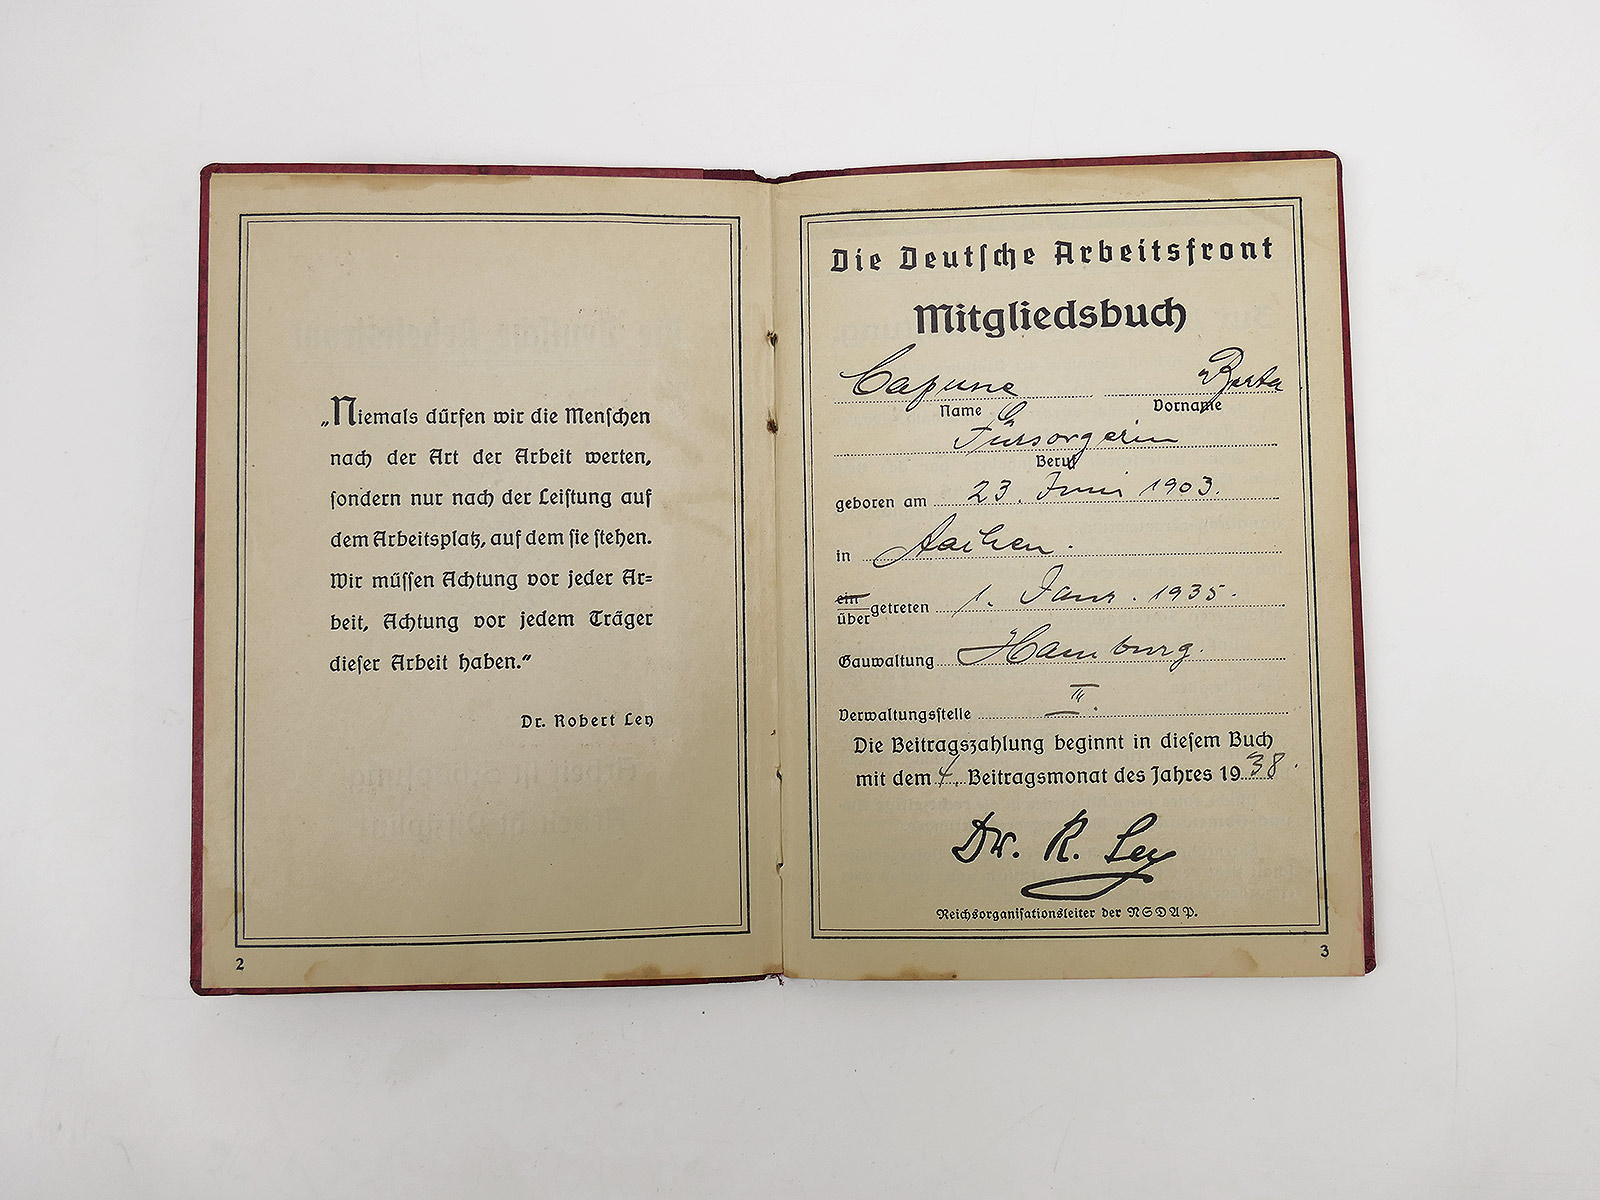 „Niemals dürfen wir die Menschen
nach der Art der Arbeit werten,
sondern nur nach der Leistung auf
dem Arbeitsplatz, auf dem sie stehen.
Wir müssen Achtung vor jeder Ar=
beit, Achtung vor jedem Träger
dieser Arbeit haben.“
Dr. Robert Ley
2
Die Deutsche Arbeitsfront
Mitgliedsbuch
Capune Berta
Name Vorname
Fürsorgerin
Beruf
geboren am 23. Juni 1903.
in Aachen.
ein
über getreten 1. Janr. 1935.
Gauwaltung Hamburg.
Verwaltungsstelle III.
Die Beitragszahlung beginnt in diesem Buch
mit dem Beitragsmonat des Jahres 1938.
Dr. R. Ley
Reichsorganisationsleiter der NSDAP.
3